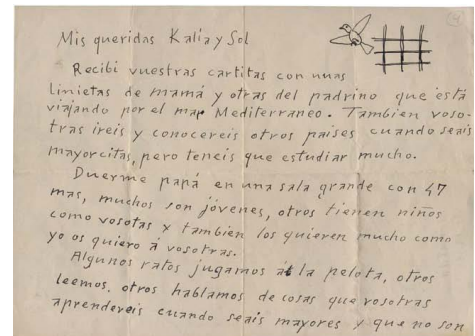 Mis queridas Kalia y Sol
Recibi vuestras cartitas con unas
linietas de mamá y otras del padrino que está
viajando por el mar Mediterraneo. Tambien voso-
tras ireis y conocereis otros paises cuando seais
mayorcitas, pero teneis que estudiar mucho.
Duerme papá en una sala grande con 47
mas, muchos son jóvenes, otros tienen niños
como vosotas y tambien los quieren mucho como
yo os quiero á vosotras.
Algunos ratos jugamos á la pelota, otros
leemos. otros hablamos de cosas que vosotras
aprendereis cuando seais mayores y que no son